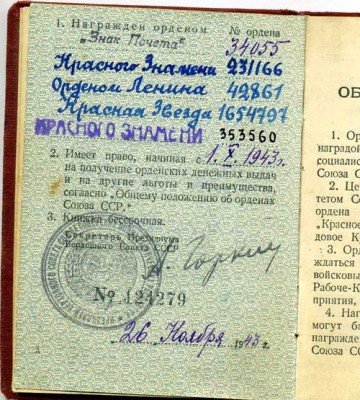 1. Награжден орденом № ордена
„Знак Почета“ 34055
Красного Знамени 231166
Орденом Ленина 42861
Красная Звезда 1654797
КРАСНОГО ЗНАМЕНИ 353560
2. Имеет право, начиная с 1. X. 1943 г.
на получение орденских денежных выдач
и на другие льготы и преимущества,
согласно „Общему положению об орденах
Союза ССР.“
3. Книжка бессрочная.
Секретарь Президиума
Верховного Совета СССР
А. Горкин
№ 124279
26 Ноября 1943 г.
ОБ
1. Ор
наградой
твом со
Союза С
2. Це
тетом Со
ордена
„Красное
довое Кр
3. Орд
ждаться
войсковы
Рабоче-К
приятия,
4. Наг
могут бы
награжде
Союза Со